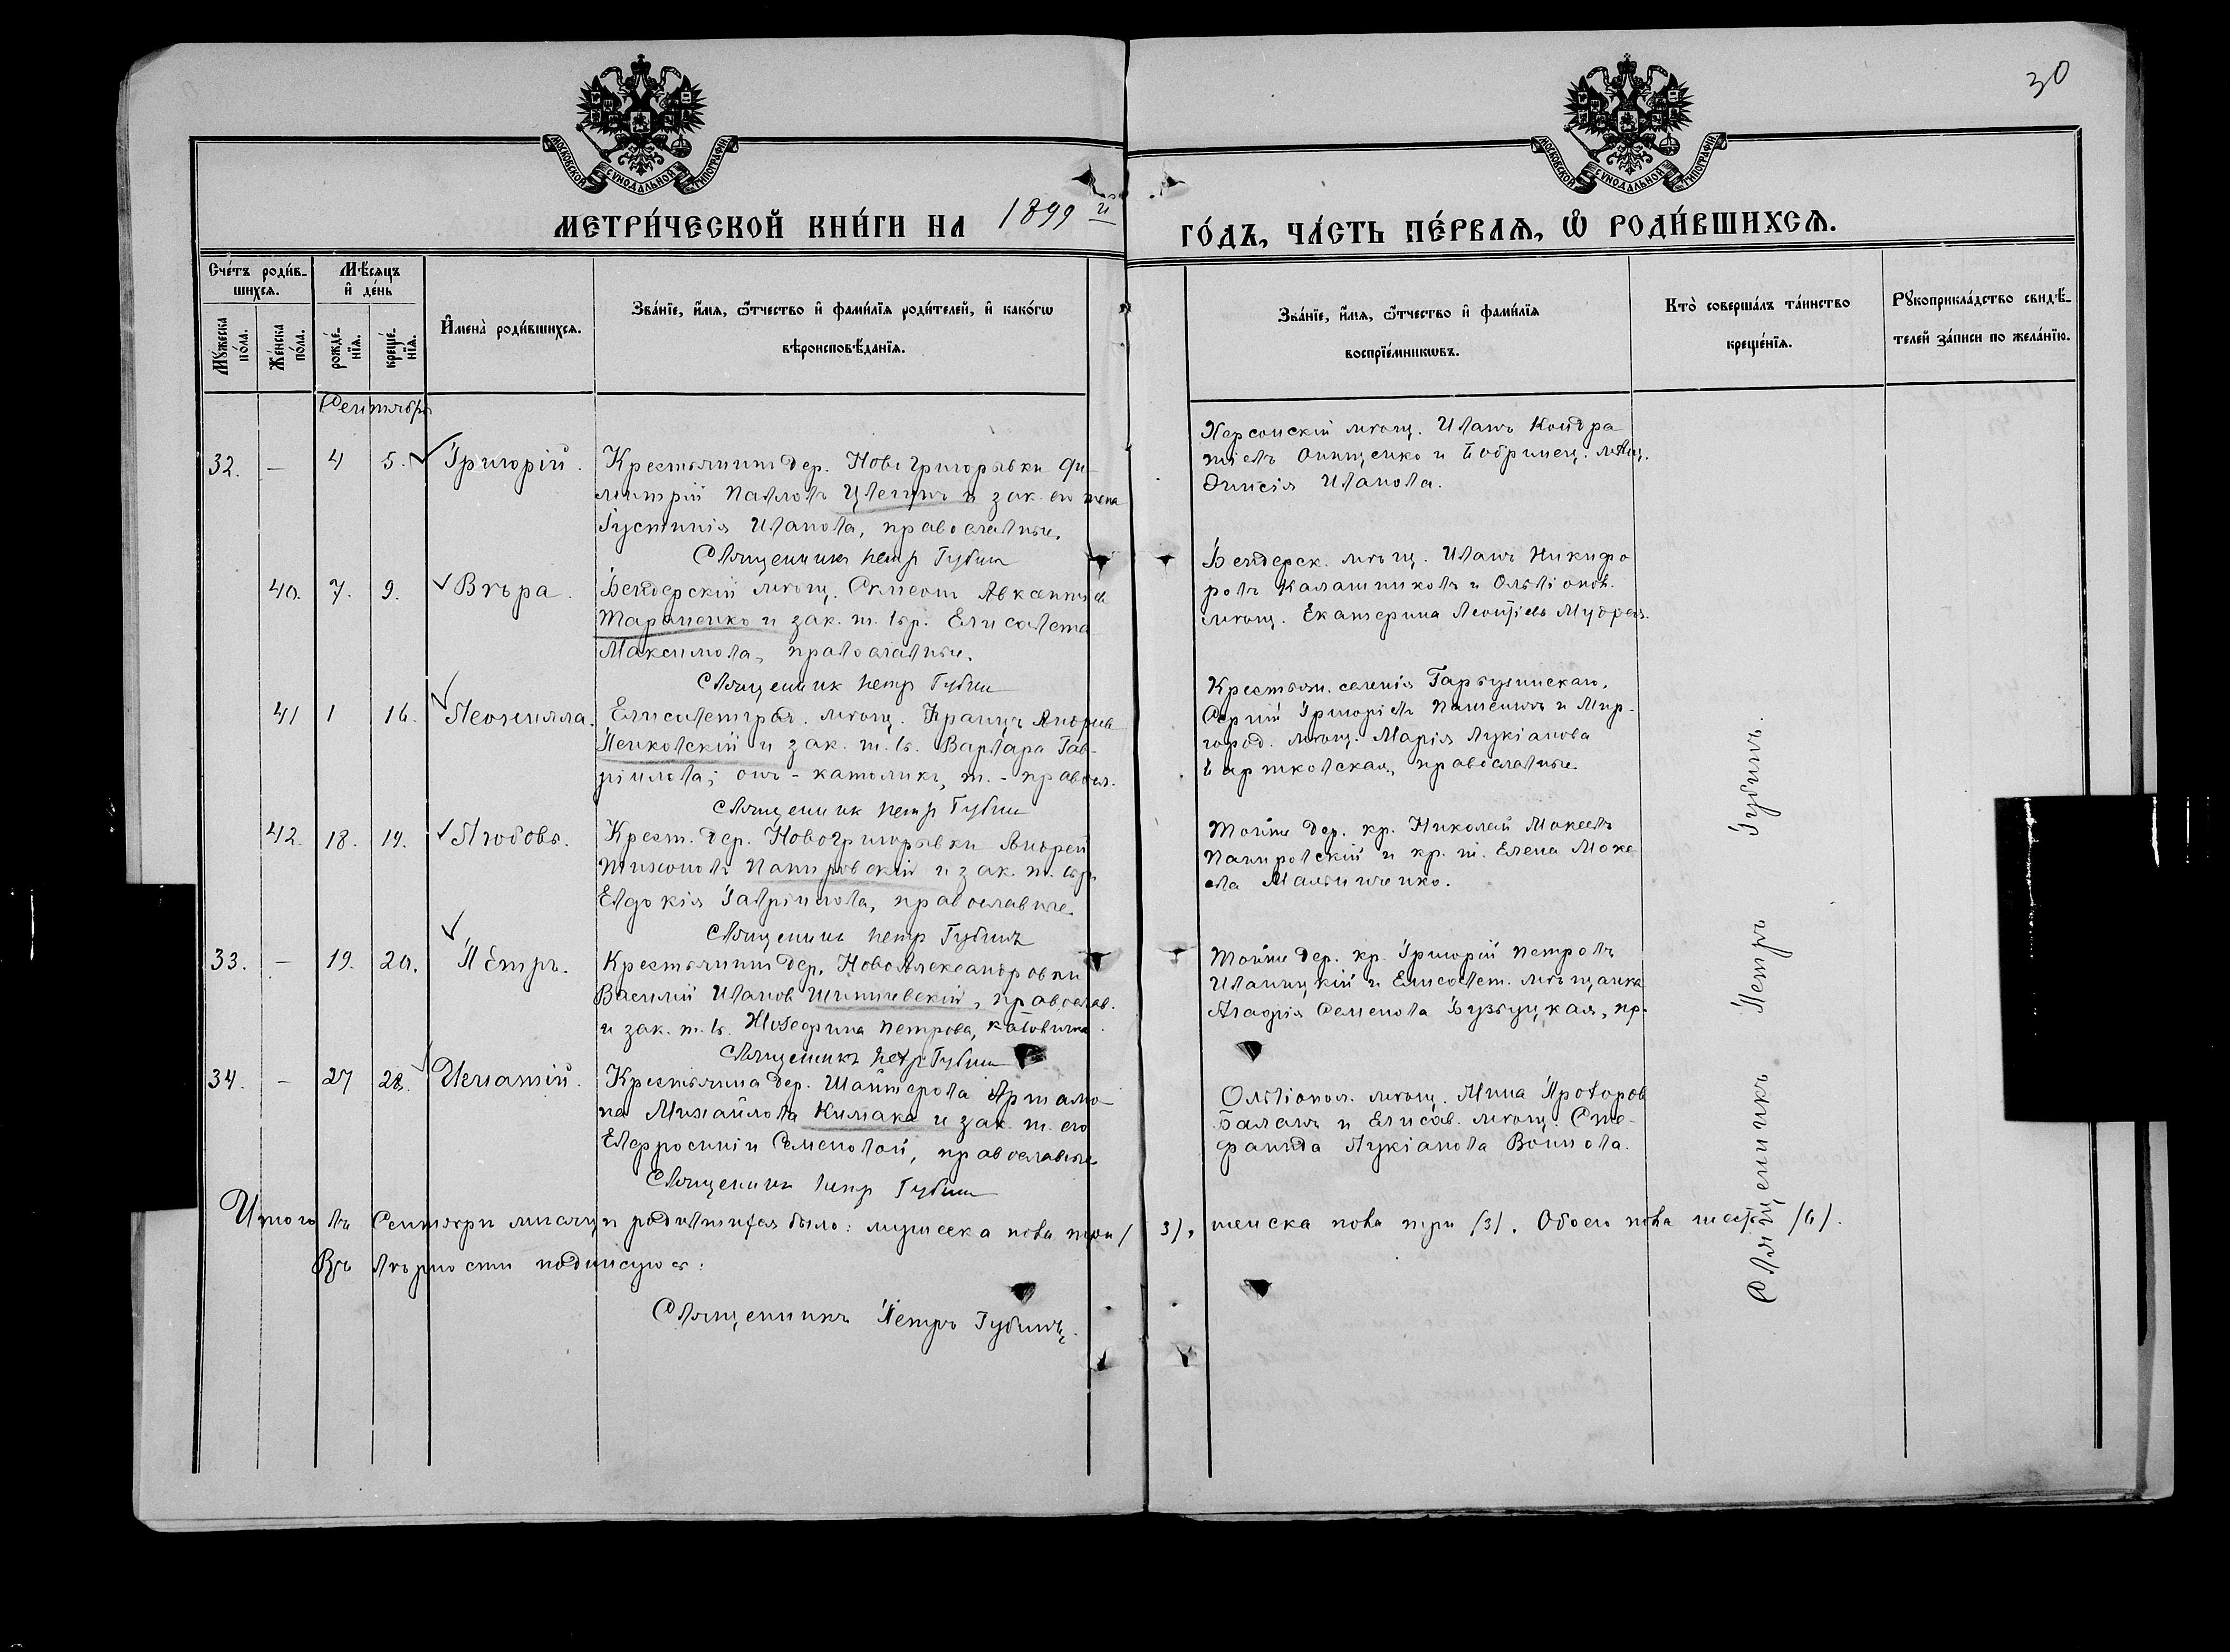 30
МОСКОВСКОЙ СѴНОДАЛЬНОЙ ТИПОГРАФІИ
МОСКОВСКОЙ СѴНОДАЛЬНОЙ ТИПОГРАФІИ
МЕТРИ́ЧЕСКОЙ КНИ́ГИ НА 1899 й ГО́ДЪ, ЧА́СТЬ ПЕ́РВАѦ, Ѡ҆ РОДИ́ВШИХСѦ.
Сче́тъ роди́в-
шихсѧ.
Мꙋ́жеска по́ла.
Же́нска по́ла.
Мѣ́сѧцъ и҆ де́нь
рожде́-
нїѧ.
креще́-
нїѧ.
И҆мена̀ роди́вшихсѧ.
Зва́нїе, и҆́мѧ, ѻ҆́тчество и҆ фами́лїѧ роди́телей, и҆ како́гѡ
вѣроисповѣ́данїѧ.
Зва́нїе, и҆́мѧ, ѻ҆́тчество и҆ фами́лїѧ
воспрїе́мникѡвъ.
Кто̀ соверша́лъ та́инство
креще́нїѧ.
Рꙋкоприкла́дство свидѣ́-
телей за́писи по жела́нїю.
Сентябрь
32. — 4 5. Григорій.
Крестьянинъ дер. Новогригорьевки Ди-
митрій Павловъ и зак. его жена
Іустинія Иванова, православные.
Священникъ Петръ Губинъ
Херсонскій мѣщ. Иванъ Кондра
тіевъ Онищенко и Бобринец. мѣщ.
Иванова.
40. 7. 9. Вѣра.
Бендерскій мѣщ. Авксентіев
Тараненко и зак. ж. его Елисавета
Максимова, православные.
Священникъ Петръ Губинъ
Бендерск. мѣщ. Иванъ Никифо
ровъ Калашниковъ и Овидіопол.
мѣщ. Екатерина Леонтіева
41 1 16. Неонилла.
Елисаветград. мѣщ. Францъ Андреев
Пенковскій и зак. ж. его Варвара Гав-
ріилова; онъ - католикъ, ж. - правосл.
Священник Петръ Губинъ
Крестьян. селенія Гарбузинскаго,
Сергій Григоріевъ и Мир-
город. мѣщ. Марія Лукіанова
православные.
42. 18. 19. Любовь.
Крест. дер. Новогригорьевки Андрей
Тихоновъ Папировскій и зак. ж. его
Евдокія Гавріилова, православные.
Священникъ Петръ Губинъ
Той же дер. кр. Николай Мокеевъ
Папировскій и кр. ж. Елена Моке
ева
33. — 19. 20. Петръ.
Крестьянинъ дер. Новоалександровки
Василій Иванов православ.
и зак. ж. его Жозефина Петрова, католичка.
Священникъ Петръ Губинъ
Той же дер. кр. Григорій Петровъ
Иваницкій и Елисавет. мѣщанка
Агафія Семенова пр.
34. — 27 28. Игнатій.
Крестьянина дер. Шайтерова Артамо-
на Михайлова Кимака и зак. ж. его
Евфросиніи Семеновой, православные
Священникъ Петръ Губинъ
Овидіопол. мѣщ. Мина Прохоров
Балашъ и Елисав. мѣщ. Сте-
фанида Лукіанова Воинова.
Священникъ Петръ Губинъ.
Итого въ Сентябрѣ мѣсяцѣ родившихся было: мужеска пола три (3), женска пола три (3). Обоего пола шесть (6).
Въ вѣрности подписуюсь:
Священникъ Петръ Губинъ.